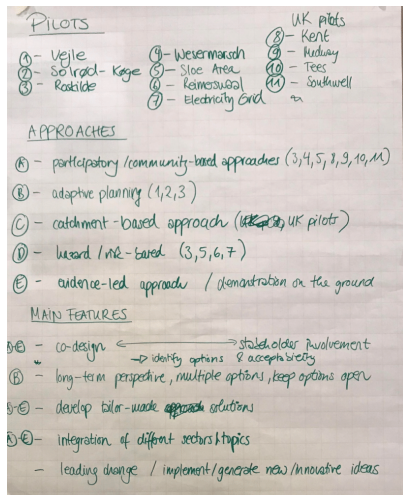 PILOTS
① - Vejle
② - Solrød - Køge
③ - Roskilde
④ - Wesermarsch
⑤ - Sloe Area
⑥ - Reimerswaal
⑦ - Electricity Grid
UK pilots
⑧ - Kent
⑨ - Medway
⑩ - Tees
⑪ - Southwell
APPROACHES
Ⓐ - participatory / community-based approaches (3,4,5,8,9,10,11)
Ⓑ - adaptive planning (1,2,3)
Ⓒ - catchment-based approach (UK pilots)
Ⓓ - hazard / risk-based (3,5,6,7)
Ⓔ - evidence-led approach / demonstration on the ground
MAIN FEATURES
- co-design ⟷ stakeholder involvement
→ identify options & acceptability
Ⓑ - long-term perspective, multiple options, keep options open
- develop tailor-made solutions
Ⓐ-Ⓔ - integration of different sectors & topics
- leading change / implement/generate new/innovative ideas